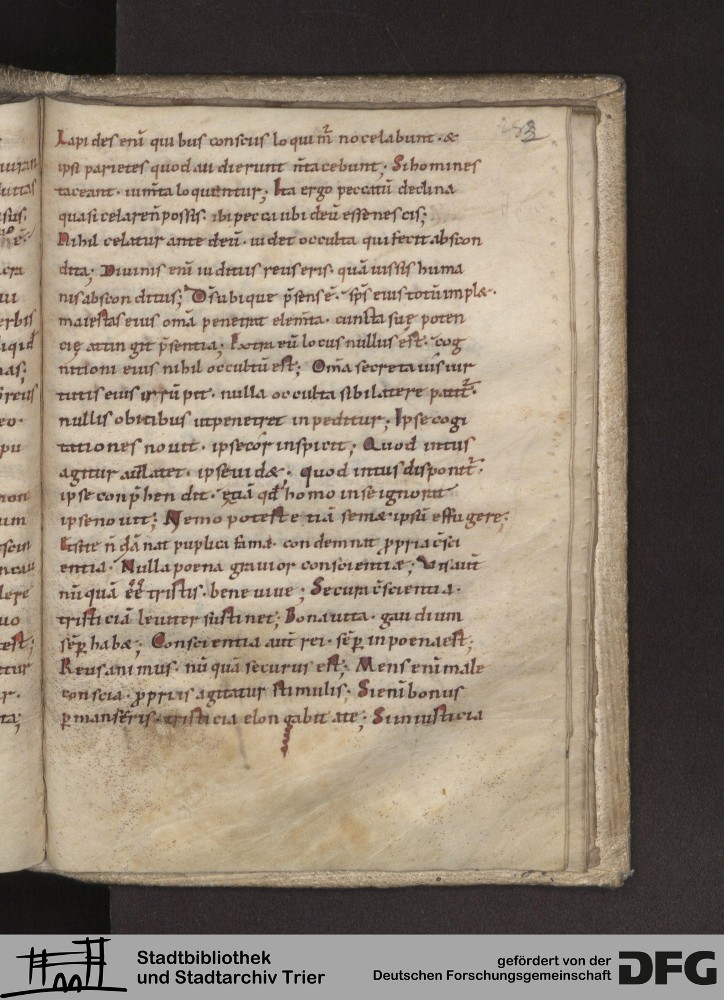 Lapi des enĩ qui bus conscius lo qui mr̃ no celabunt · &
ipsi parietes quod au dierunt ñ tacebunt; Si homines
taceant · iumt̃a lo quentur; Ita ergo peccatũ declina
quasi celare ñ possis · ibi pecca ubi deũ esse nescis;
Nihil celatur ante deũ · ui det occulta qui fecit abscon
dita; Diuinis enĩ iu ditus reus eris · quã uis sis huma
nis abscon ditus; D̃s ubi que p̃sens ẽ · sp̃s eius totũ impl& ·
maiestas eius om̃a penetrat elem̃ta · cunsta suę poten
cię attin git p̃sentia; Extra eũ locus nullus est · cog
nitioni eius nihil occultũ est; Om̃a secreta uis uir
tutis eius irrũpit · nulla occulta sibi latere patit̃ ·
nullis obicibus ut penetret inpeditur; Ipse cogi
tationes nouit · ipse cor inspicit; Quod intus
agitur aut latet · ipse uid& · quod intus disponit̃ ·
ipse conp̃hen dit · etiã qđ homo in se ignorat
ipse no uit; Nemo potest e tiã sem& ipsũ effugere;
Et ñ dã nat puplica fama · con demnat propria c̃sci
entia · Nulla poena grauior conscientiæ; Vis aut̃
nũ quã eẽ tristis · bene uiue; Secura c̃scientia ·
tristi ciã leuiter susti net; Bona uita · gau dium
sẽp hab&; Conscientia aut̃ rei · sẽp in poena est;
Reus ani mus · nũ quã securus est; Mens enĩ male
conscia · propriis agitatur stimulis · Si enĩ bonus
p manseris · tristi cia elon gabit a te; Si iniusticia
Stadtbibliothek
und Stadtarchiv Trier
gefördert von der
Deutschen Forschungsgemeinschaft
DFG